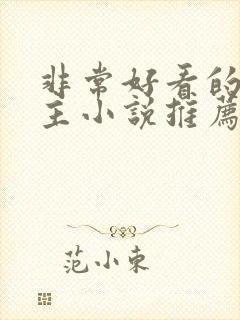 非常好看的
主小說推薦
范小東